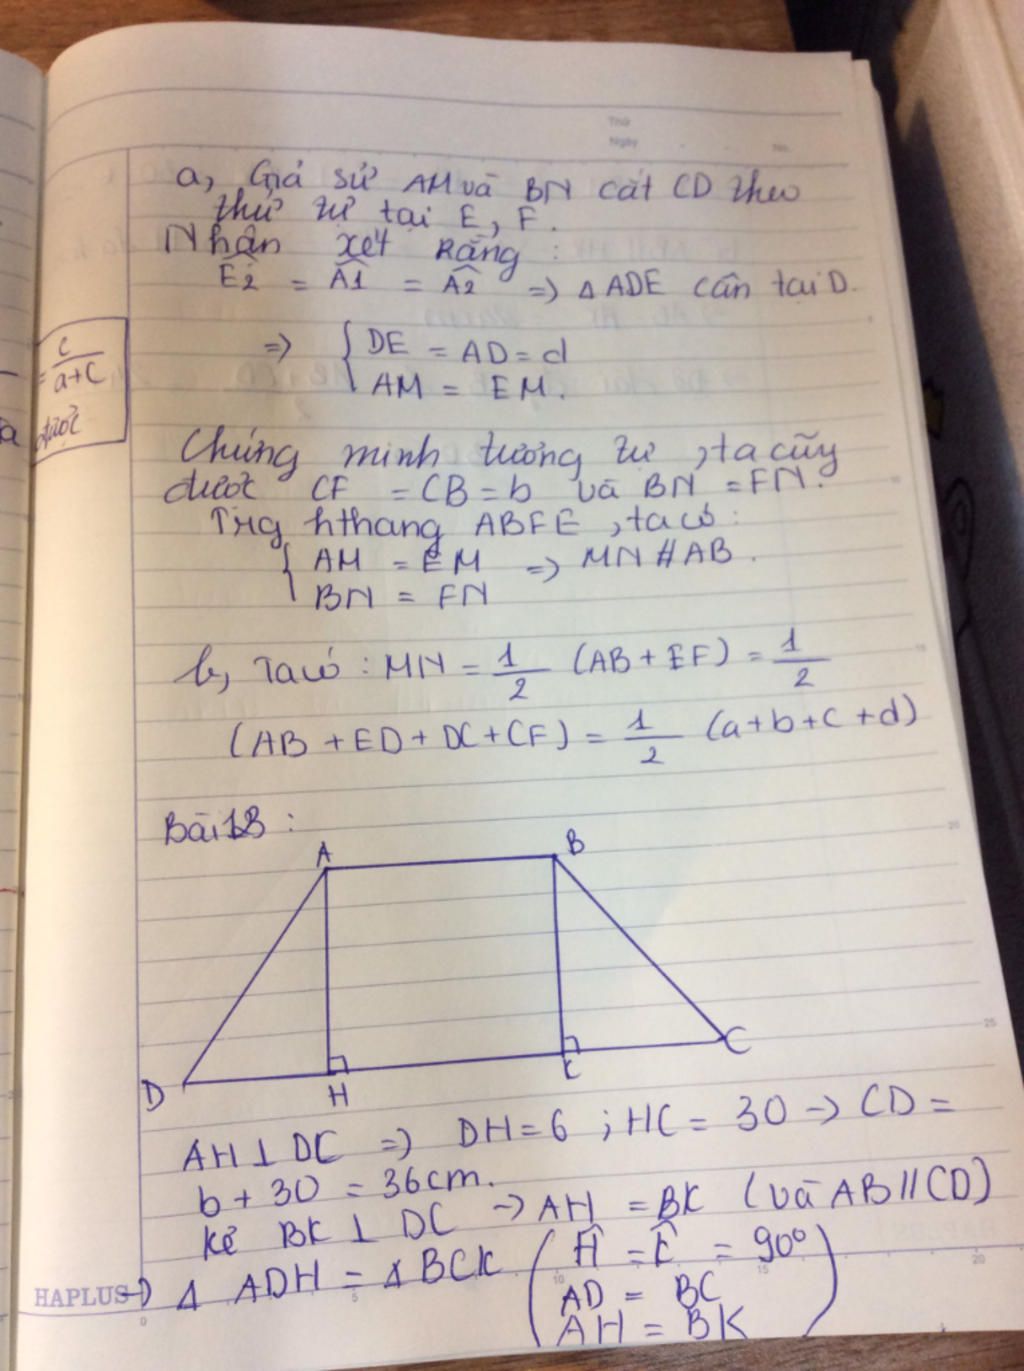 Thứ
Ngày
No.
a, Giả sử AM và BN cắt CD theo
thứ tự tại E, F.
Nhận xét Rằng :
Ê2 = Â1 = Â2 => Δ ADE cân tại D.
=> { DE = AD = d
AM = EM.
= c/a+c
được
Chứng minh tương tự, ta cũg
được CF = CB = b và BN = FN.
Trg hthang ABFE, ta có:
{ AM = EM => MN // AB.
BN = FN
b, Ta có : MN = 1/2 (AB + EF) = 1/2
(AB + ED + DC + CF) = 1/2 (a+b+c+d)
Bài 1B :
A B
D H K C
AH ⊥ DC => DH = 6 ; HC = 30 -> CD =
b + 30 = 36cm.
kẻ BK ⊥ DC -> AH = BK (và AB // CD)
-> Δ ADH = Δ BCK ( Ĥ = K̂ = 90°
AD = BC
AH = BK )
HAPLUS
0 5 10 15 20
20
25